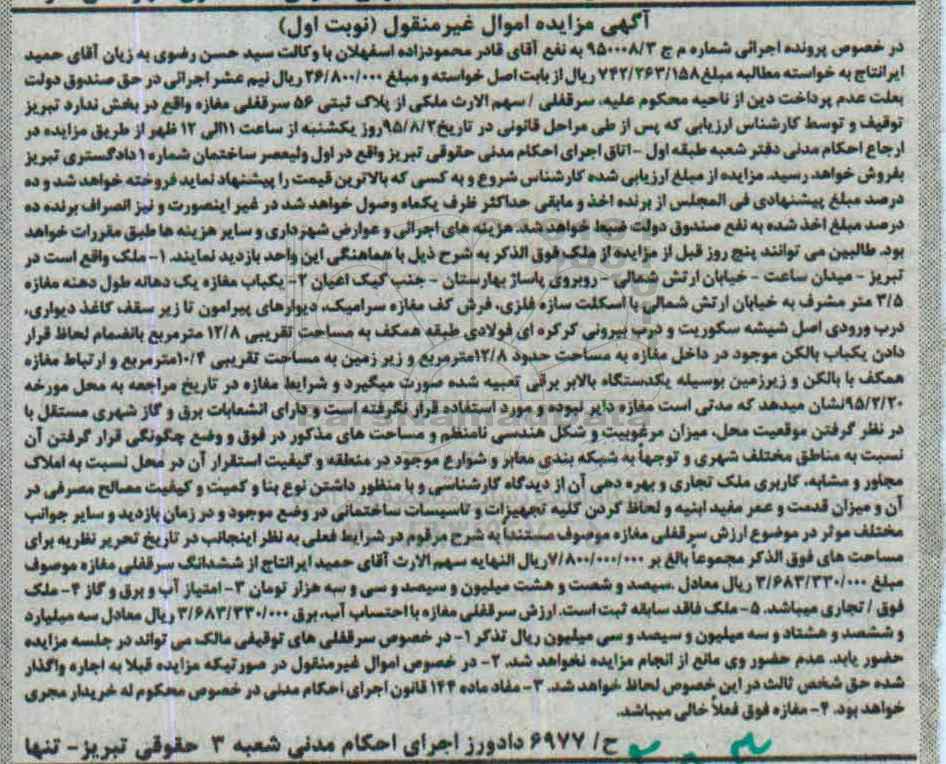 آگهی مزایده اموال غیرمنقول (نوبت اول)
در خصوص پرونده اجرائی شماره م ج ۹۵۰۰۰۸/۳ به نفع آقای قادر محمودزاده اسفهلان با وکالت سید حسن رضوی به زیان آقای حمید
ایرانتاج به خواسته مطالبه مبلغ ۷۴۲/۲۶۳/۱۵۸ ریال از بابت اصل خواسته و مبلغ ۲۶/۸۰۰/۰۰۰ ریال نیم عشر اجرائی در حق صندوق دولت
بعلت عدم پرداخت دین از ناحیه محکوم علیه، سرقفلی / سهم الارث ملکی از پلاک ثبتی ۵۶ سرقفلی مغازه واقع در بخش ندارد تبریز
توقیف و توسط کارشناس ارزیابی که پس از طی مراحل قانونی در تاریخ ۹۵/۸/۲ روز یکشنبه از ساعت ۱۱ الی ۱۲ ظهر از طریق مزایده در
ارجاع احکام مدنی دفتر شعبه طبقه اول - اتاق اجرای احکام مدنی حقوقی تبریز واقع در اول ولیعصر ساختمان شماره ۱ دادگستری تبریز
بفروش خواهد رسید. مزایده از مبلغ ارزیابی شده کارشناس شروع و به کسی که بالاترین قیمت را پیشنهاد نماید فروخته خواهد شد و ده
درصد مبلغ پیشنهادی فی المجلس از برنده اخذ و مابقی حداکثر ظرف یکماه وصول خواهد شد در غیر اینصورت و نیز انصراف برنده ده
درصد مبلغ اخذ شده به نفع صندوق دولت ضبط خواهد شد. هزینه های اجرائی و عوارض شهرداری و سایر هزینه ها طبق مقررات خواهد
بود. طالبین می توانند پنج روز قبل از مزایده از ملک فوق الذکر به شرح ذیل با هماهنگی این واحد بازدید نمایند. ۱- ملک واقع است در
تبریز - میدان ساعت - خیابان ارتش شمالی - روبروی پاساژ بهارستان - جنب کیک اعیان ۲- یکباب مغازه یک دهانه طول دهنه مغازه
۳/۵ متر مشرف به خیابان ارتش شمالی با اسکلت سازه فلزی، فرش کف مغازه سرامیک، دیوارهای پیرامون تا زیر سقف کاغذ دیواری،
درب ورودی اصل شیشه سکوریت و درب بیرونی کرکره ای فولادی طبقه همکف به مساحت تقریبی ۱۲/۸ مترمربع بانضمام لحاظ قرار
دادن یکباب بالکن موجود در داخل مغازه به مساحت حدود ۱۲/۸مترمربع و زیر زمین به مساحت تقریبی ۱۰/۴مترمربع و ارتباط مغازه
همکف با بالکن و زیرزمین بوسیله یکدستگاه بالابر برقی تعبیه شده صورت میگیرد و شرایط مغازه در تاریخ مراجعه به محل مورخه
۹۵/۲/۲۰نشان میدهد که مدتی است مغازه دایر نبوده و مورد استفاده قرار نگرفته است و دارای انشعابات برق و گاز شهری مستقل با
در نظر گرفتن موقعیت محل، میزان مرغوبیت و شکل هندسی نامنظم و مساحت های مذکور در فوق و وضع چگونگی قرار گرفتن آن
نسبت به مناطق مختلف شهری و توجهاً به شبکه بندی معابر و شوارع موجود در منطقه و کیفیت استقرار آن در محل نسبت به املاک
مجاور و مشابه، کاربری ملک تجاری و بهره دهی آن از دیدگاه کارشناسی و با منظور داشتن نوع بنا و کمیت و کیفیت مصالح مصرفی در
آن و میزان قدمت و عمر مفید ابنیه و لحاظ کردن کلیه تجهیزات و تاسیسات ساختمانی در وضع موجود و در زمان بازدید و سایر جوانب
مختلف موثر در موضوع ارزش سرقفلی مغازه موصوف مستنداً به شرح مرقوم در شرایط فعلی به نظر اینجانب در تاریخ تحریر نظریه برای
مساحت های فوق الذکر مجموعاً بالغ بر ۷/۸۰۰/۰۰۰/۰۰۰ریال النهایه سهم الارث آقای حمید ایرانتاج از ششدانگ سرقفلی مغازه موصوف
مبلغ ۳/۶۸۳/۳۳۰/۰۰۰ ریال معادل سیصد و شصت و هشت میلیون و سیصد و سی و سه هزار تومان ۳- امتیاز آب و برق و گاز ۴- ملک
فوق / تجاری میباشد. ۵- ملک فاقد سابقه ثبت است. ارزش سرقفلی مغازه با احتساب آب، برق ۳/۶۸۳/۳۳۰/۰۰۰ ریال معادل سه میلیارد
و ششصد و هشتاد و سه میلیون و سیصد و سی میلیون ریال تذکر ۱- در خصوص سرقفلی های توقیفی مالک می تواند در جلسه مزایده
حضور یابد. عدم حضور وی مانع از انجام مزایده نخواهد شد. ۲- در خصوص اموال غیرمنقول در صورتیکه مزایده قبلا به اجاره واگذار
شده حق شخص ثالث در این خصوص لحاظ خواهد شد. ۳- مفاد ماده ۱۴۴ قانون اجرای احکام مدنی در خصوص محکوم له خریدار مجری
خواهد بود. ۴- مغازه فوق فعلاً خالی میباشد.
ح/ ۶۹۷۷ دادورز اجرای احکام مدنی شعبه ۳ حقوقی تبریز- تنها